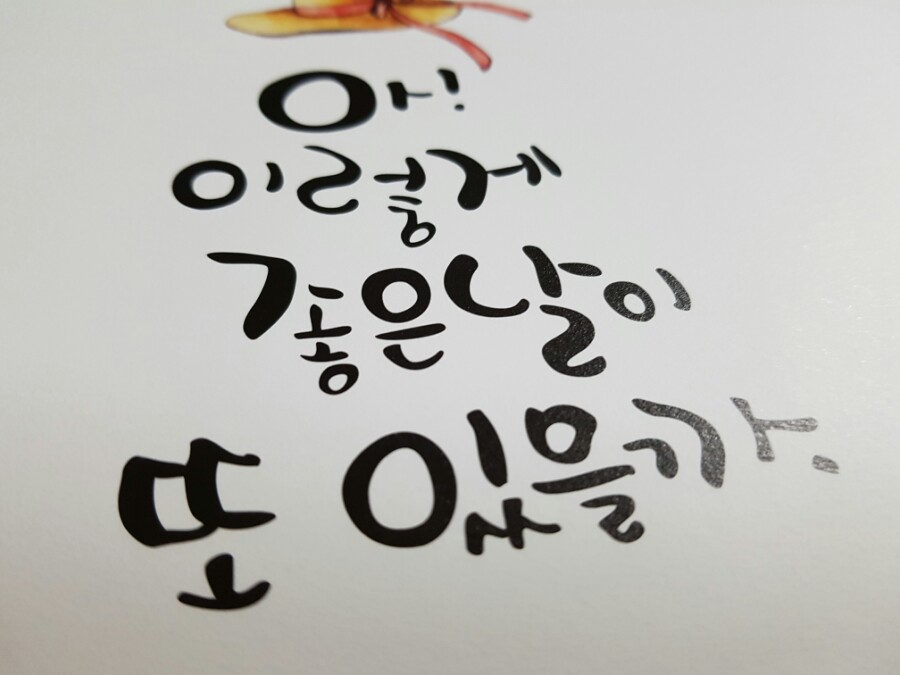 아!
이렇게
좋은날이
또 있을까.